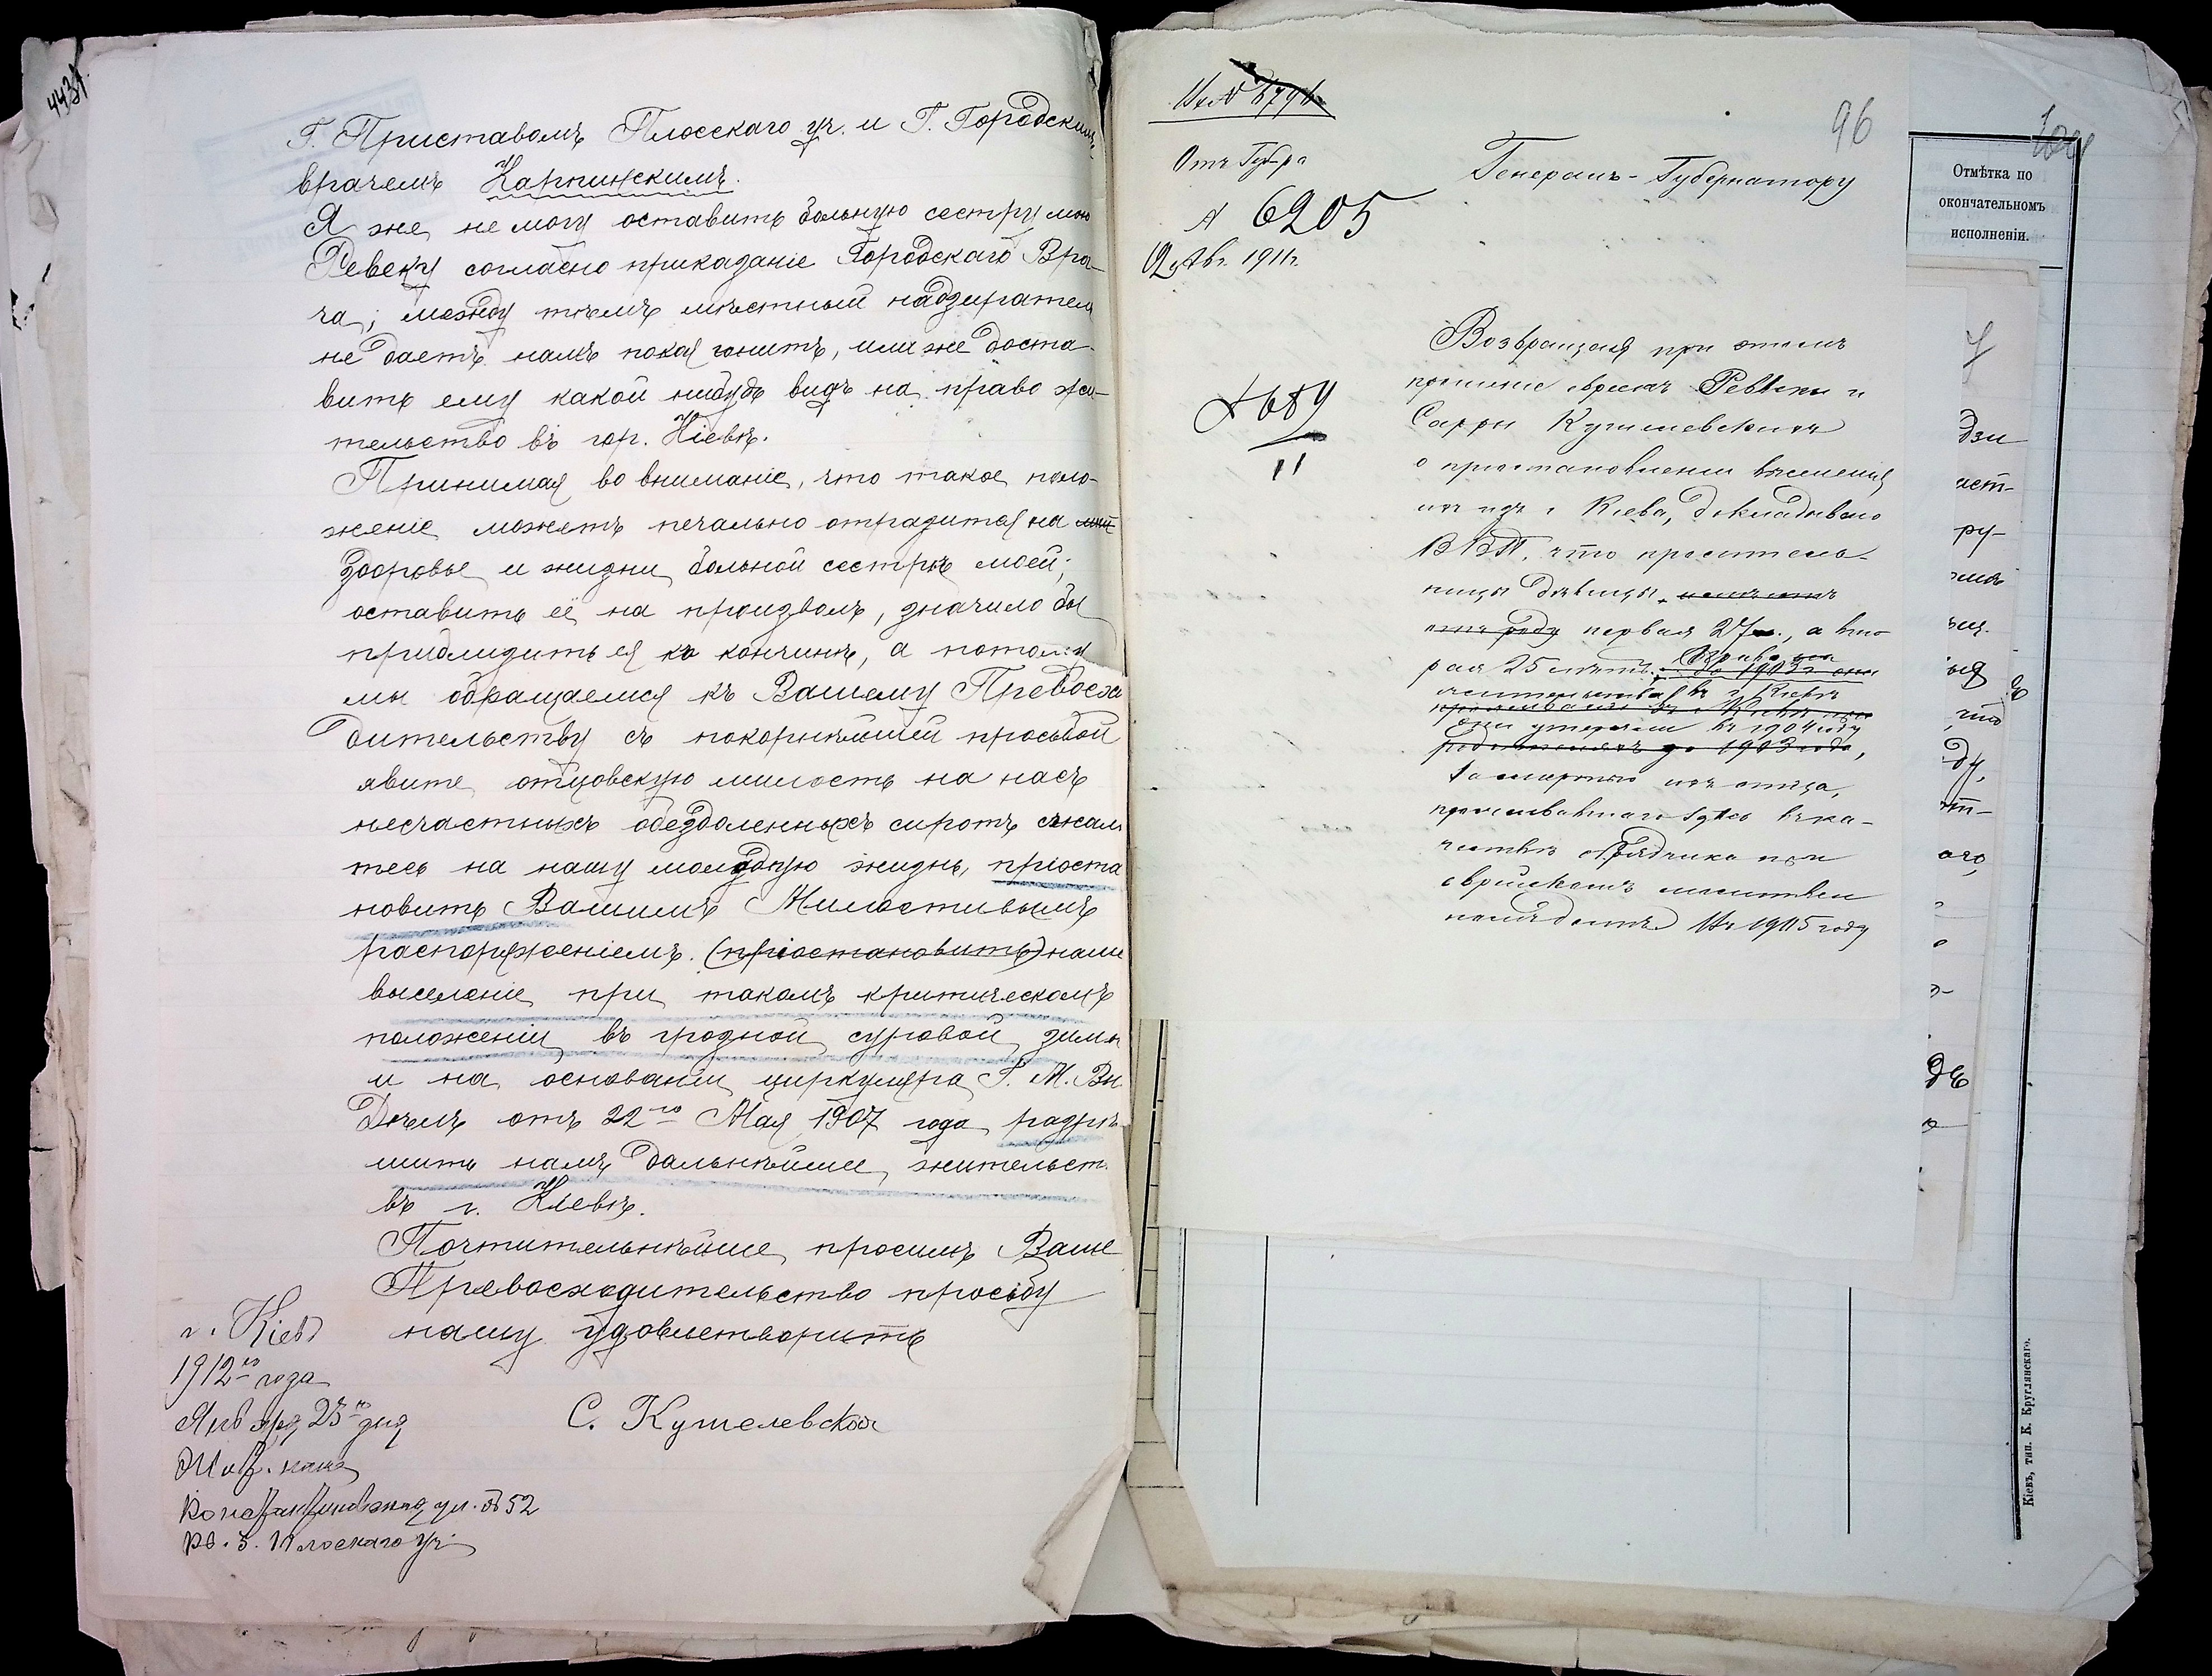 4431
Г. Приставомъ Плосскаго уч. и Г. Городскимъ
врачемъ Карпинскимъ.
Я же не могу оставить больную сестру мою
Ревеку согласно приказанiе Городскаго Вра-
ча; между тѣмъ мѣстный надзиратель
не даетъ намъ покоя гонитъ, или же доста-
вить ему какой нибудь видъ на право жи-
тельство въ гор. Кiевѣ.
Принимая во вниманiе, что такое поло-
женiе можетъ печально отразится на
здоровье и жизни больной сестрѣ моей;
оставить её на произволъ, значило бы
приблизить ея ко кончинѣ, а потому
мы обращаемся къ Вашему Превосхо
дительству съ покорнѣйшей просьбой
явите отцовскую милость на насъ
несчастныхъ обездоленныхъ сиротъ сжаль
тесь на нашу молодую жизнь, прiоста
новить Вашимъ Милостивымъ
распоряженiемъ. (прiостановить) наше
выселенiе при такомъ критическомъ
положенiи въ грозной суровой зимѣ
и на основанiи циркуляра Г. М. Вн.
Дѣлъ отъ 22го Мая 1907 года разрѣ
шить намъ дальнѣйшее жительст.
въ г. Кiевѣ.
Почтительнѣйше просимъ Ваше
Превосходительство просьбу
нашу удовлетворить
г. Кiевъ
1912го года
Января 23го дня
С. Кушелевская
Константиновская ул. № 52
кв. 3. Плоскаго уч.
96
Отъ Губ-ра
№ 6205
1911г.
Генералъ-Губернатору
689
11
Возвращая при этомъ
прошенiе евреекъ Ревеки и
Сарры Кушелевскихъ
о прiостановленiи выселенiя
ихъ изъ г. Кiева, докладываю
В.В.П. что проситель-
ницы дѣвицы,
первая 27, а вто
рая 25 лѣтъ.
Право на
жительства въ г. Кiевѣ
они утеряли въ 1904 году
за смертью ихъ отца,
проживавшаго здѣсь въ ка-
чествѣ обрядчика при
еврейскомъ молитвен
1905 году
Отмѣтка по
окончательномъ
исполненiи.
дзи
аст-
ру-
ду,
ого,
Кiевъ, тип. К. Круглянскаго.